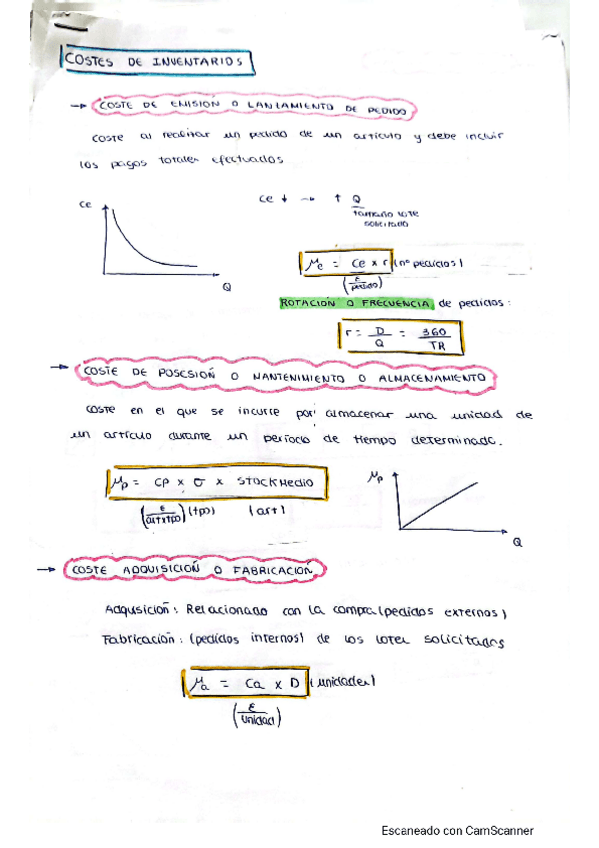 COSTES DE INVENTARIOS
→ COSTE DE EMISIÓN O LANZAMIENTO DE PEDIDO
COSTE al realizar un pedido de un artículo y debe incluir
los pagos totales efectuados
Ce ↓ → ↑ Q
tamaño lote
solicitado
Ce
Q
μe = Ce x r (nº pedidos)
(€/pedido)
ROTACIÓN O FRECUENCIA de pedidos:
r = D/Q = 360/TR
→ COSTE DE POSESIÓN O MANTENIMIENTO O ALMACENAMIENTO
COSTE en el que se incurre por almacenar una unidad de
un artículo durante un período de tiempo determinado.
μp = CP x σ x STOCK Medio
(€/art x tpo) (tpo) (art)
μp
Q
→ COSTE ADQUISICIÓN O FABRICACIÓN
Adquisición: Relacionado con la compra (pedidos externos)
Fabricación: (pedidos internos) de los lotes solicitados
μa = Ca x D (unidades)
(€/unidad)
Escaneado con CamScanner